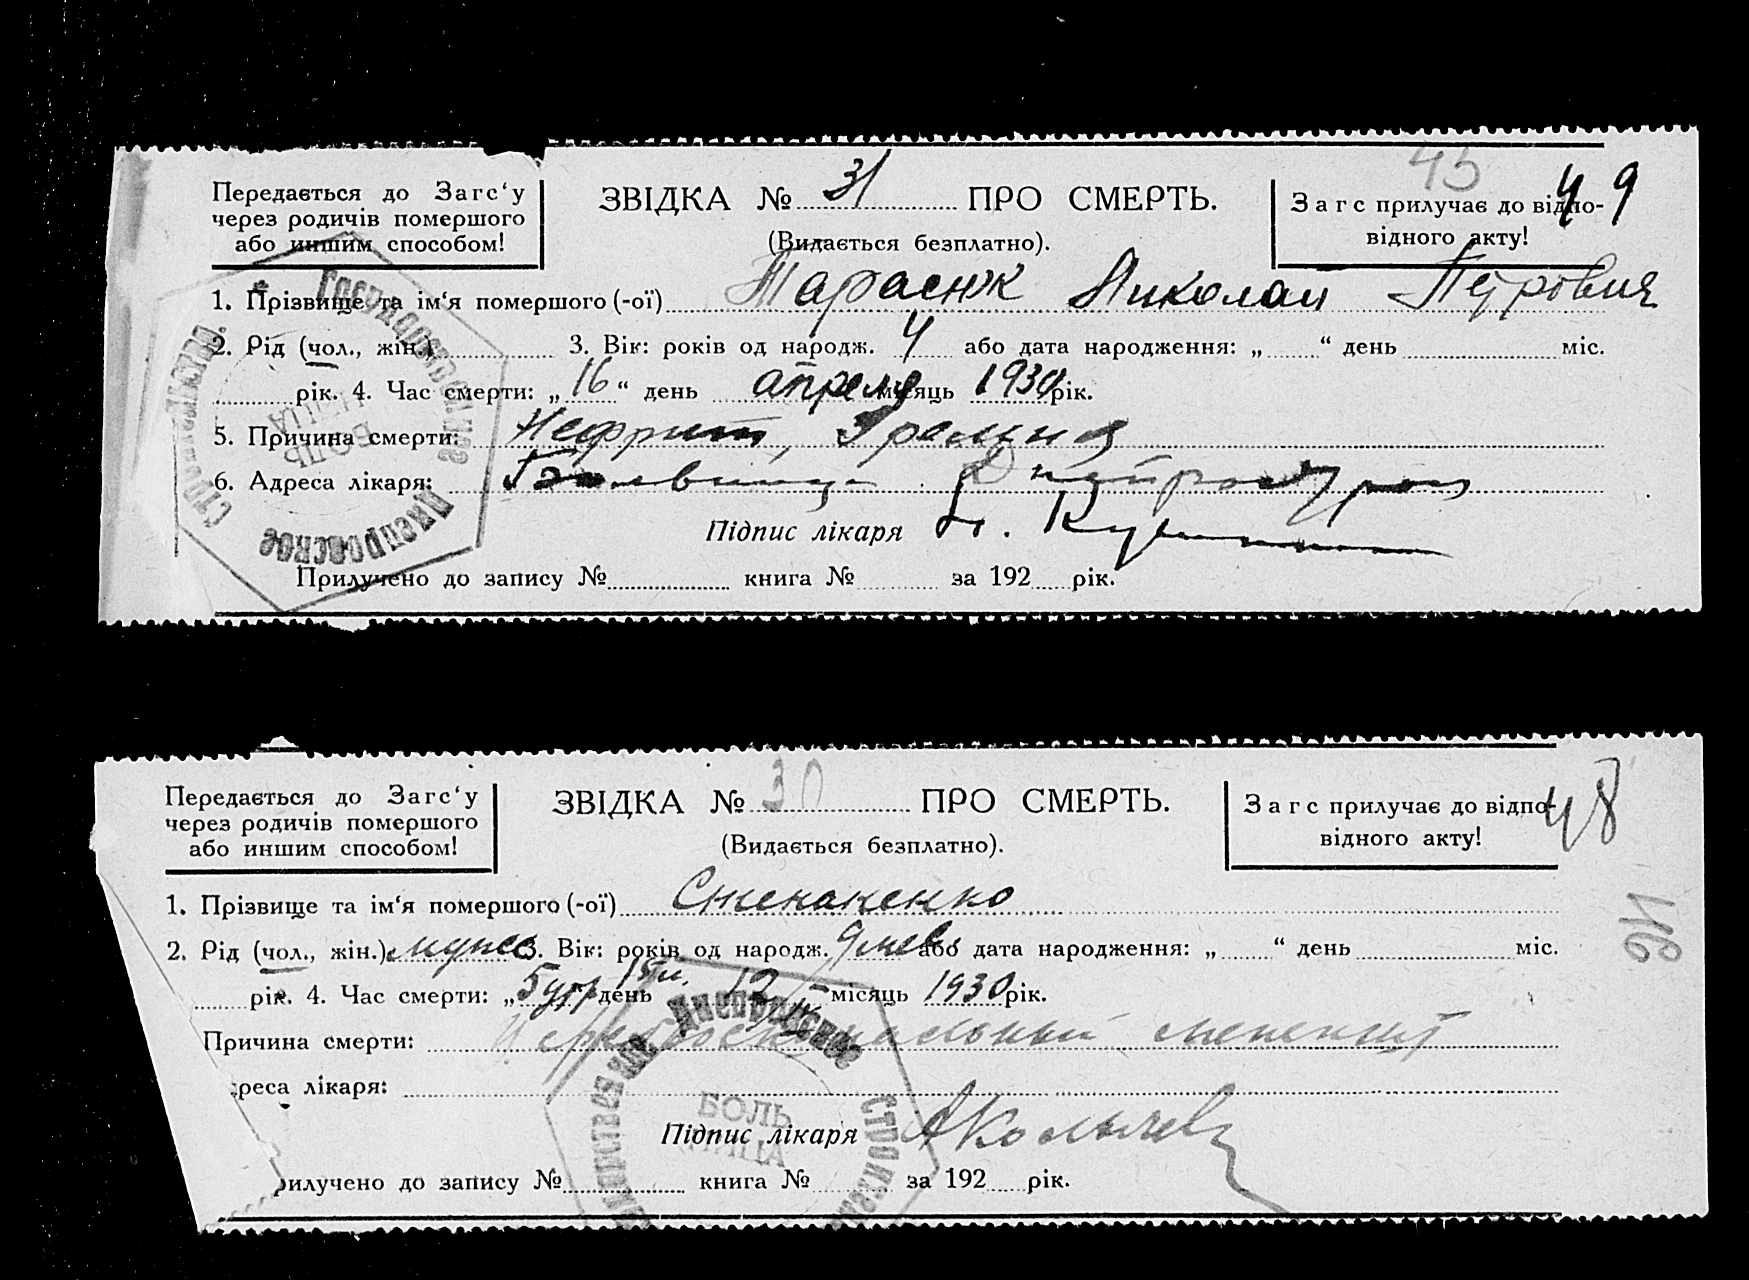 45
49
Передається до Загс‘у
через родичів помершого
або иншим способом!
ЗВІДКА № 31 ПРО СМЕРТЬ.
(Видається безплатно).
Загс прилучає до відпо-
відного акту!
1. Прізвище та ім‘я помершого (-ої) Тарасюк Николай Петрович
2. Рід (чол., жін.) 3. Вік: років од народж. 4 або дата народження: „ “ день міс.
рік. 4. Час смерти: „16“ день апреля місяць 1930 рік.
5. Причина смерти: Нефрит,
6. Адреса лікаря: Больница Днепрострой
Підпис лікаря
Прилучено до запису № книга № за 192 рік.
Государственное
Днепровское
Строительство
БОЛЬ
НИЦА
48
Передається до Загс‘у
через родичів помершого
або иншим способом!
ЗВІДКА № 30 ПРО СМЕРТЬ.
(Видається безплатно).
Загс прилучає до відпо-
відного акту!
1. Прізвище та ім‘я помершого (-ої) Степаненко
2. Рід (чол., жін.) мужс 3. Вік: років од народж. 9 мес або дата народження: „ “ день міс.
рік. 4. Час смерти: „5 утр день 15 м. місяць 1930 рік.
Причина смерти: Цереброспинальный менингит
реса лікаря:
Підпис лікаря
рилучено до запису № книга № за 192 рік.
Днепровское
БОЛЬ
НИЦА
46